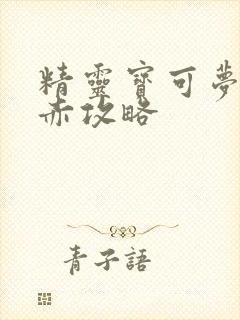 精靈寶可夢
赤攻略
青子語